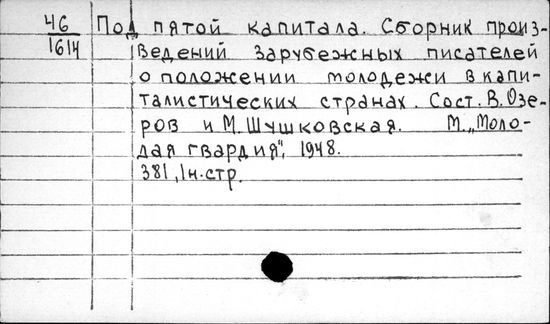 46 Под пятой капитала. Сборник произ-
1614 ведений зарубежных писателей
о положении молодежи в капи-
талистических странах. Сост. В. Озе-
ров и М. Шушковская. М. „Моло-
дая гвардия", 1948.
381, 1н.стр.